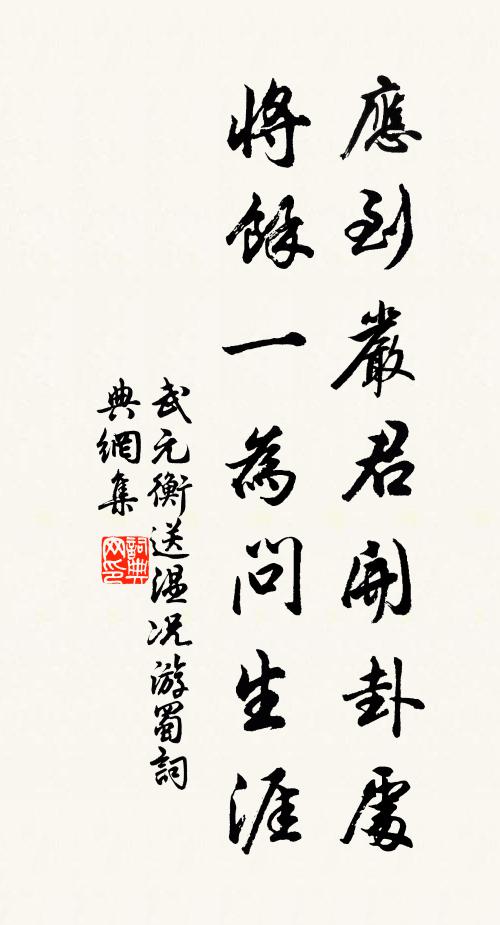 應到嚴君開卦處
將餘一為問生涯
武元衡送溫況游蜀詞
典網集
詞典
网印